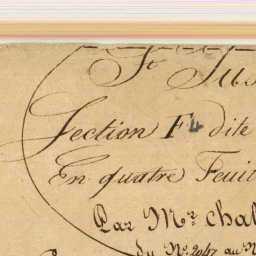 St Jus
Section F4 dite
En quatre Feuil
Par Mr. Chal
du No. 2047 au N